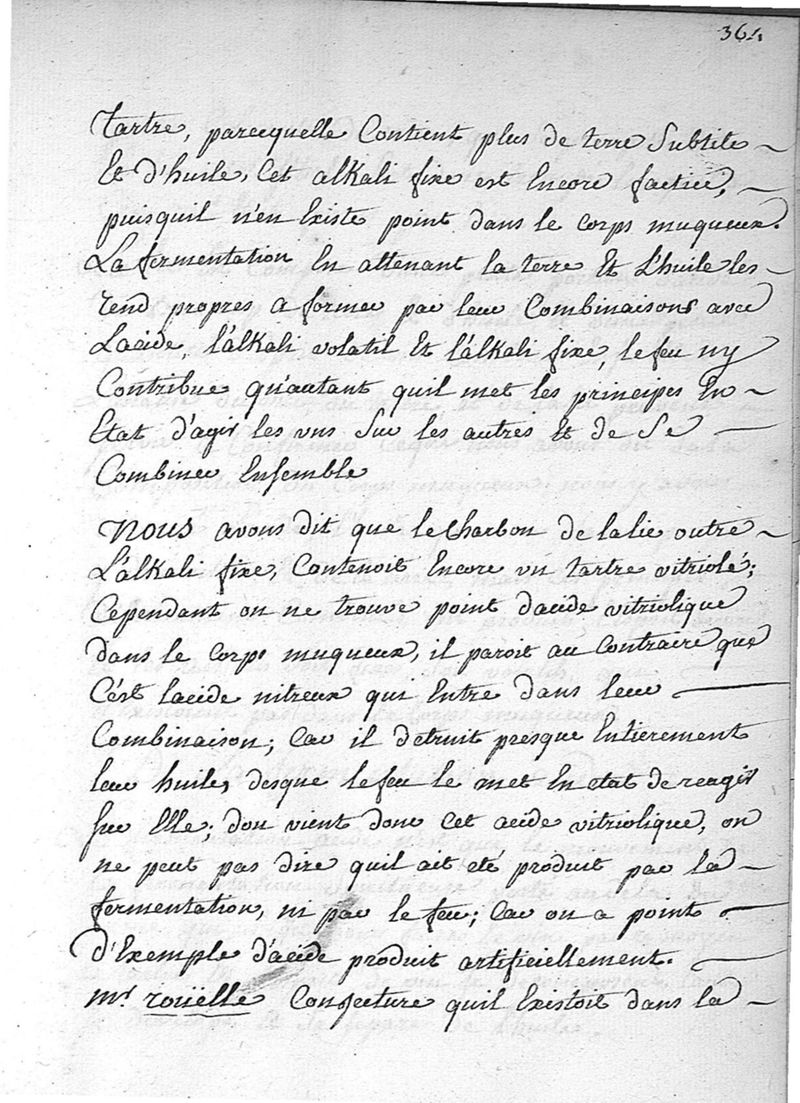 364
tartre, parcequelle Contient plus de terre Subtile
Et d'huile, Cet alkali fixe est Encore factice,
puisquil n'en Existe point dans le corps muqueux.
La fermentation En attenant la terre Et L'huile les
rend propres a former par leur Combinaisons avec
L'acide, l'álkali volatil Et l'álkali fixe, le feu ny
Contribue qu'autant quil met les principes En
Etat d'agir les vns Sur les autres Et de Se
Combiner Ensemble
Nous avons dit que le Charbon de la lie outre
L'álkali fixe, Contenoit Encore vn tartre vitriolé;
Cependant on ne trouve point dacide vitriolique
dans le Corps muqueux, il paroit au Contraire que
C'est lacide nitreux qui Entre dans leur
Combinaison; Car il detruit presque Entierement
leur huile, desque le feu le met En etat de reagir
sur Elle; dou vient donc Cet acide vitriolique, on
ne peut pas dire quil ait eté produit par la
fermentation, ni par le feu; Car on a point
d'Exemple d'acide produit artificiellement.
mr. roüelle Conjecture quil Existoit dans la